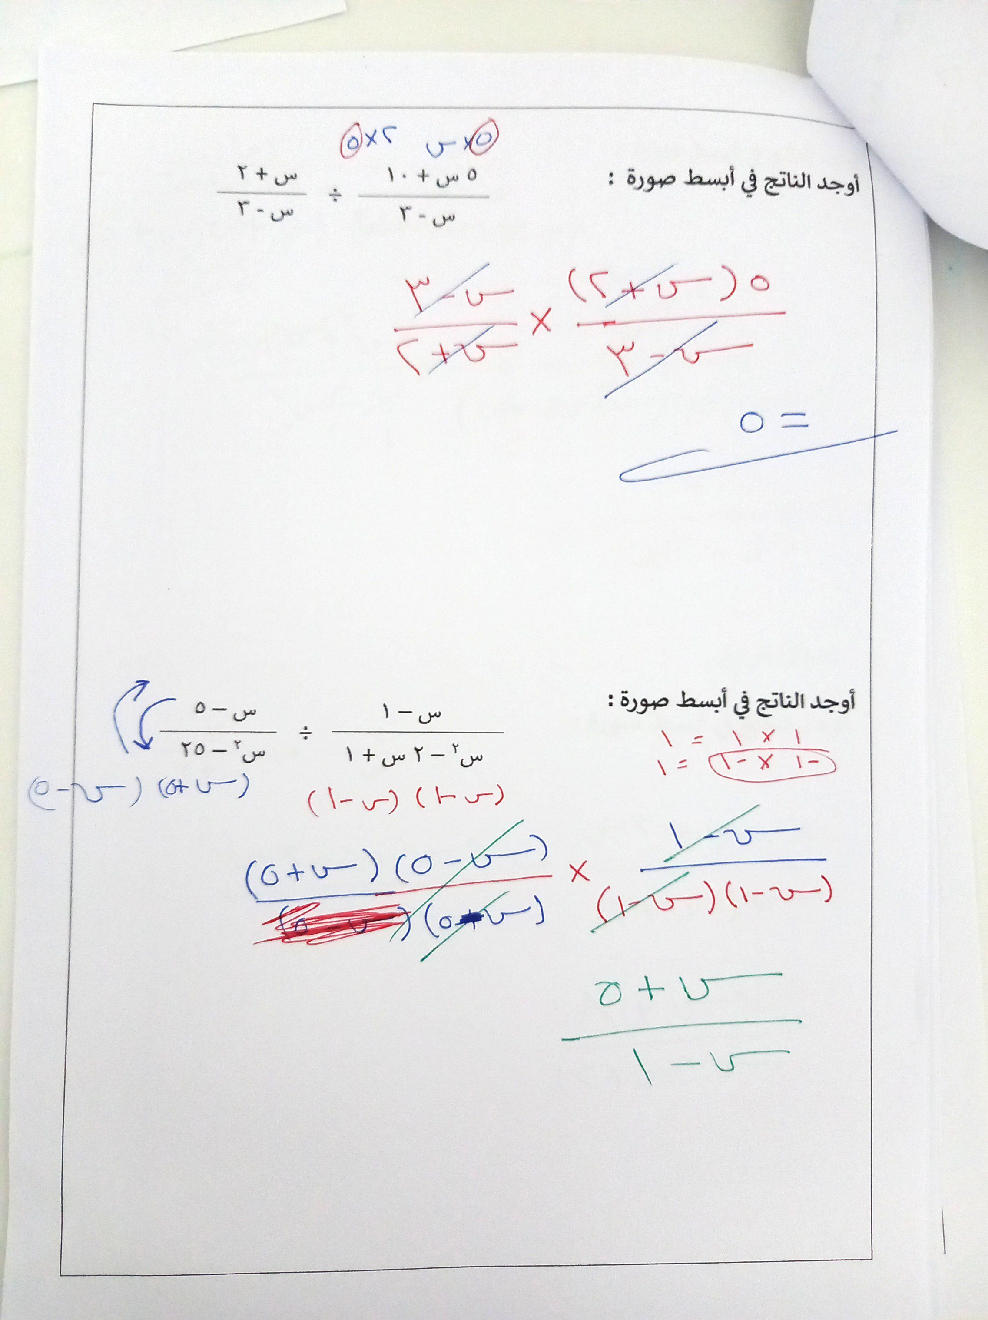 ٥×س ٢×٥
أوجد الناتج في أبسط صورة : ٥ س + ١٠ / س - ٣ ÷ س + ٢ / س - ٣
٥ (س + ٢) / س - ٣ × س - ٣ / س + ٢
= ٥
أوجد الناتج في أبسط صورة : س - ١ / س² - ٢ س + ١ ÷ س - ٥ / س² - ٢٥
١ × ١ = ١
-١ × -١ = ١
(س - ١) (س - ١) (س + ٥) (س - ٥)
س - ١ / (س - ١) (س - ١) × (س - ٥) (س + ٥) / (س - ٥)
س + ٥
س - ١